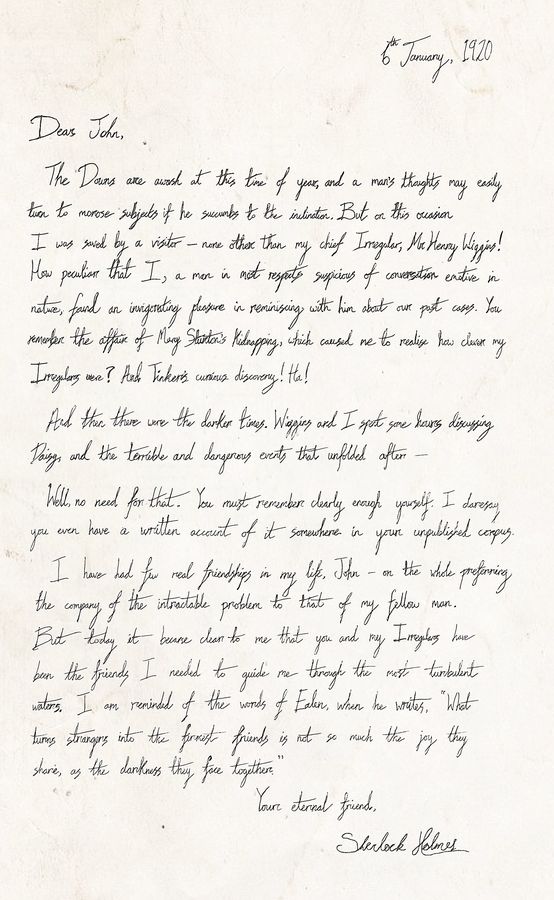 6th January, 1920
Dear John,
The Downs are awash at this time of year, and a man's thoughts may easily
turn to morose subjects if he succumbs to the inclination. But on this occasion
I was saved by a visitor – none other than my chief Irregular, Mr. Henry Wiggins!
How peculiar that I, a man in most respects suspicious of conversation emotive in
nature, found an invigorating pleasure in reminiscing with him about our past cases. You
remember the affair of Mary Kidnapping, which caused me to realise how clever my
Irregulars were? And Tinker's curious discovery! Ha!
And then there were the darker times. Wiggins and I spent some hours discussing
Daisy, and the terrible and dangerous events that unfolded after –
Well, no need for that. You must remember clearly enough yourself. I daresay
you even have a written account of it somewhere in your unpublished corpus.
I have had few real friendships in my life, John – on the whole preferring
the company of the intractable problem to that of my fellow man.
But today it became clear to me that you and my Irregulars have
been the friends I needed to guide me through the most turbulent
waters. I am reminded of the words of when he writes, "What
turns strangers into the firmest friends is not so much the joy they
share, as the darkness they face together."
Your eternal friend,
Sherlock Holmes